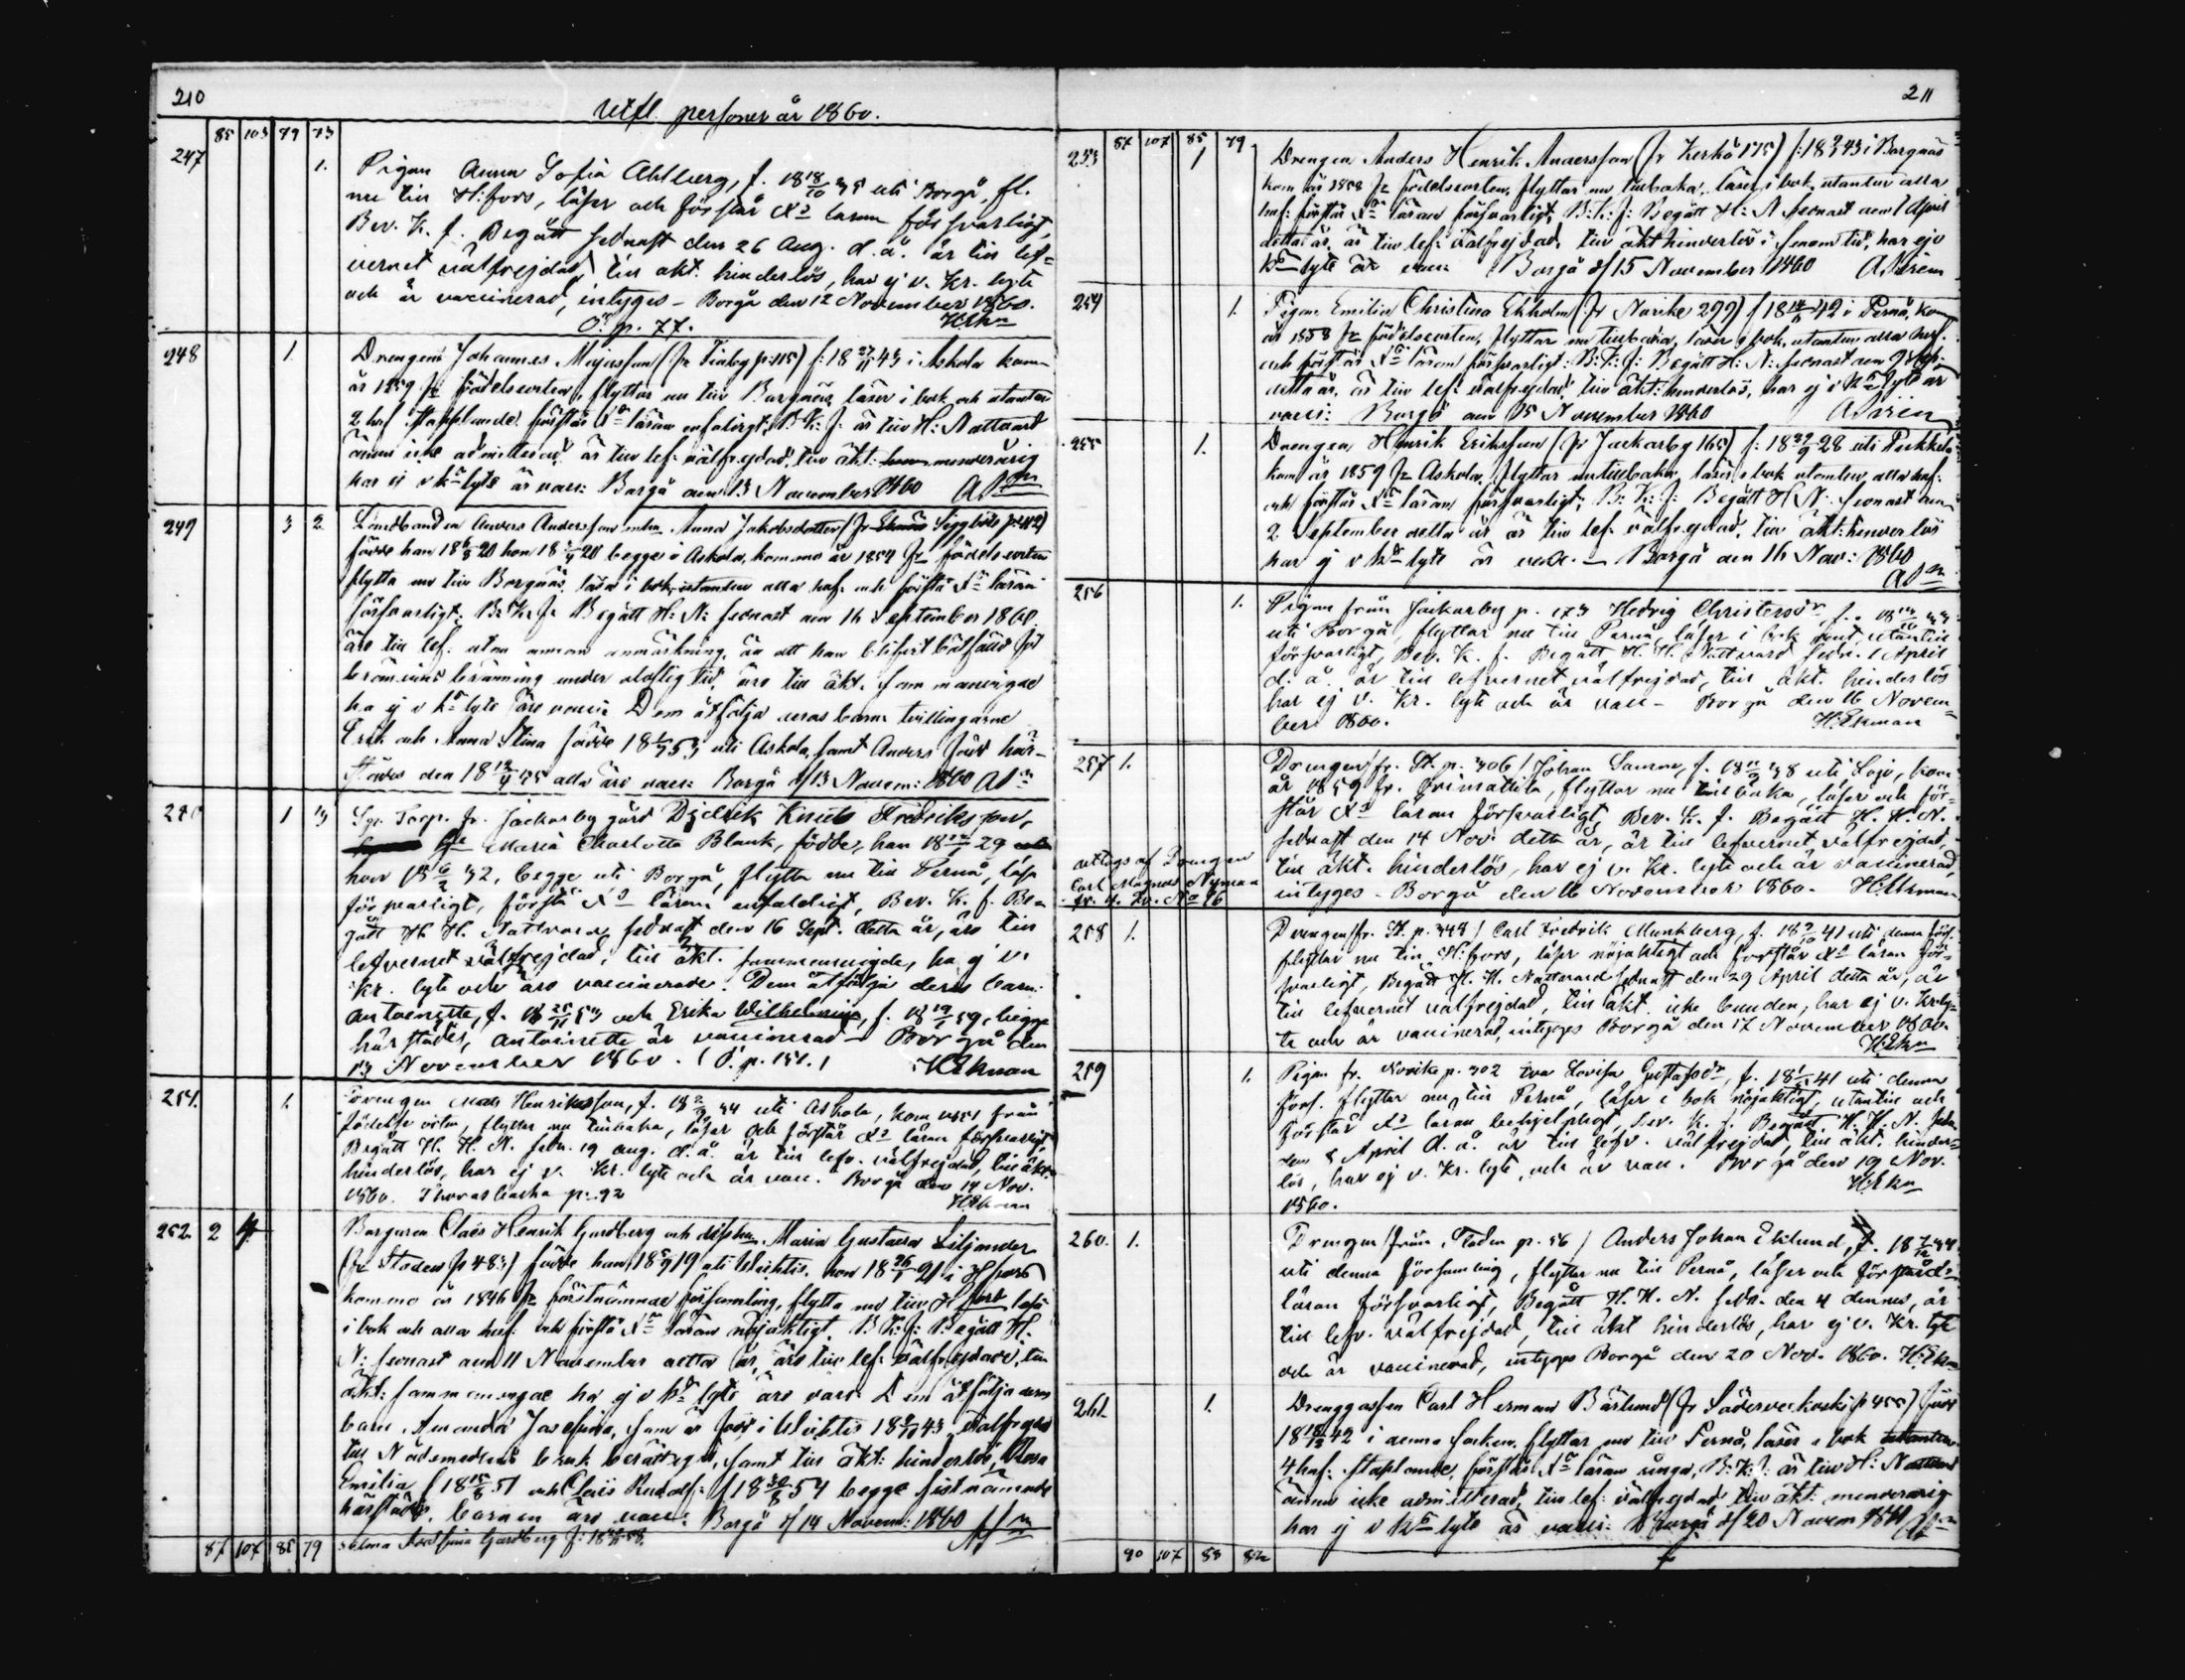 210
Utfl. personer år 1860.
85 103 79 73
247 1. Pigan Anna Sofia Ahlberg, f. 18 18/10 35 uti Borgå, fl.
nu till H:fors, läser och förstår Xi läran försvarligt,
Bev. K. f. Begått sednast den 26 Aug. d. å. är till lef-
vernet välfrejdad, till äkt. hinderlös, har ej v. Kr. lyte
och är vaccinerad, intygas – Borgå den 12 November 1860.
O. p. 77. HEkn
248 1. Drengen Johannes Majasson (fr p: 115) f: 18 27/11 43 i Askola kom
år 1859 fr födelseorten, flyttar nu till Borgnäs, läser i bok och utantill
2 huf. förstår Xi läran enfaldigt, B. K: f: är till H: Nattvard
ännu icke admitterad, är till lef: välfrejdad, till äkt: minderårig
har ej v kr lyte är vacc: Borgå den 13 November 1860
249 3 2 Anders Andersson Anna Jakobsdotter (fr Siggböle p: 112)
födde han 18 6/8 20 hon 18 20 begge i Askola, kommo år 1854 fr födelseorten
flytta nu till Borgnäs, läsa i bok utantill alla huf. och förstå Xi läran
försvarligt. B: K: f: Begått H: N: sednast den 16 September 1860
äro till lef. utan annan anmärkning, än att han blifvit bötfälld för
bränvins bränning under olaflig tid, äro till äkt. sammanvigde
ha ej v kr lyte äro vacci Dem åtfölja deras barn tvillingarne
Erik och Anna Stina födde 18 53 uti Askola, samt Anders född här-
städes den 18 12/4 55 alla äro vacc: Borgå d/13 Novem: 1860
250 1 3 Torp. fr. Jackarby gård Didrik Knut Fredriksson,
Maria Charlotta Blank, födde, han 18 29
hon 18 6/2 32, begge uti Borgå, flytta nu till Pernå, läsa
försvarligt, förstå Xi läran enfaldigt, Bev. K. f. Be-
gått H. H. Nattvard sednast den 16 Sept. detta år, äro till
lefvernet välfrejdad, till äkt. sammanvigde, ha ej v.
Kr. lyte och äro vaccinerade. Dem åtfölja deras barn:
Antoinette, f. 18 25/11 53 och Erika Wilhelmina, f. 18 19/1 59, begge
härstädes, Antoinette är vaccinerad – Borgå den
13 November 1860. (O. p. 151.) HEkman
251. 1. Drengen Mats Henriksson, f. 18 2/2 34 uti Askola, kom 1851 från
födelse orten, flyttar nu tillbaka, läser och förstår Xi läran försvarligt,
Begått H. H. N. sedn. 19 Aug. d. å. är till lefv. välfrejdad, till äkt.
hinderlös, har ej v. Kr. lyte och är vacc. Borgå den 14 Nov.
1860. p: 92 HEkman
252 2 4 Borgaren Claës Henrik Gardberg och Maria Gustava Liljander
(fr Staden p 483) födde han 18 5/9 19 uti Wichtis, hon 18 26/1 21 i H:fors
kommo år 1846 fr förstnämnde församling, flytta nu till H:fors läsa
i bok och alla huf. och förstå Xi läran nöjaktigt. B: K: f: Begått H.
N: sednast den 11 November detta år, äro till lef: välfrejdade, till
äkt: sammanvigde ha ej v kr lyte äro vacc. Dem åtfölja deras
barn Amanda Josefina, som är född i Wichtis 18 43 välfrejdad
till Nådemedlens bruk berättigad, samt till äkt: hinderlös, Rosa
Emilia f 18 15/8 51 och Claës Rudolf: f 18 30/8 54 begge sistnämnde
härstädes, barnen äro vacc: Borgå d/14 Novem: 1860
Josefina Gardberg f: 18 58.
87 107 85 79
211
87 107 85 79
253 1 Drengen Anders Henrik Andersson (fr Kerkö 175) f: 18 43 i Borgnäs
kom år 1858 fr födelseorten, flyttar nu tillbaka, läser i bok, utantill alla
huf: förstår Xi läran försvarligt, B: K: f: Begått H: N sednast den 1 April
detta år, är till lef: välfrejdad, till äkt hinderlös i senom tid, har ej v
kr lyte är vacc: Borgå d/15 November 1860
254 1. Pigan Emilia Christina Ekholm (fr Norike 299) f 18 14/11 42 i Pernå, kom
år 1858 fr födelseorten, flyttar nu tillbaka, läser i bok, utantill alla huf.
och förstår Xi läran försvarligt: B: K: f: Begått H: N: sednast den 9 Sep:
detta år, är till lef: välfrejdad, till äkt: hinderlös, har ej v Kr lyte är
vacci: Borgå den 15 November 1860
255 1. Drengen Henrik Eriksson (fr Jackarby 165) f: 18 29/9 28 uti Pukkila
kom år 1859 fr Askola, flyttar nu tillbaka, läser i bok utantill alla huf:
och förstår Xi läran försvarligt, B: K: f: Begått H N: sednast den
2 September detta år är till lef. välfrejdad, till äkt: hinderlös
har ej v kr lyte är vacc. – Borgå den 16 Nov: 1860
256 1. Pigan från Jackarby p. 173 Hedvig Christersdr, f. 18 33
uti Borgå, flyttar nu till Pernå, läser i bok rent, utantill
försvarligt, Bev. K. f. Begått H. H. Nattvard sedn. 1 April
d. å. är till lefvernet välfrejdad, till äkt. hinderlös
har ej v. Kr. lyte och är vacc – Borgå den 16 Novem-
ber 1860. H:Ekman
257 1. Drengen (fr. St. p. 306) Johan Samm, f. 18 11/2 38 uti Lojo, kom
år 1859 fr. Orimattila, flyttar nu tillbaka, läser och för-
står Xi läran försvarligt, Bev. K. f. Begått H. H. N.
sednast den 14 Nov. detta år, är till lefvernet välfrejdad,
till äkt. hinderlös, har ej v. Kr. lyte och är vaccinerad,
intyges – Borgå den 16 November 1860. HEkman
uttogs af Drengen
Carl Magnus Nyman
258 1. Drengen (fr. St. p. 448) Carl Fredrik Munkberg, f. 18 9/10 41 uti denna förs.
flyttar nu till H:fors, läser nöjaktigt och förstår Xi läran för-
svarligt, Begått H. H. Nattvard sednast den 29 April detta år, är
till lefvernet välfrejdad, till äkt. icke bunden, har ej v. Kr. ly-
te och är vaccinerad, intyges Borgå den 17 November 1860.
H:Ekn
259 1. Pigan fr. Norike p. 302 Eva Lovisa Gustafsdr, f. 18 41 uti denna
förs. flyttar nu till Pernå, läser i bok nöjaktigt, utantill och
förstår Xi läran behjelpligt, Bev. K. f. Begått H. H. N. sedn.
den 8 April d. å. är till lefv. välfrejdad, till äkt. hinder-
lös, har ej v. Kr. lyte, och är vacc. Borgå den 19 Nov.
1860. H:Ekn
260. 1. Drengen (från Staden p. 56) Anders Johan Eklund, f. 18 7/12 34
uti denna församling, flyttar nu till Pernå, läser och förstår Xi
läran försvarligt, Begått H. H. N. sedn. den 4 dennes, är
till lefv. välfrejdad, till äkt hinderlös, har ej v. Kr. lyte
och är vaccinerad, intyges Borgå den 20 Nov. 1860. H:Ekn
261. 1. Drenggossen Carl Herman Bärlund (fr Söderveckoski p 455) född
18 42 i denna socken, flyttar nu till Pernå, läser i bok
4 huf: förstår Xi läran ringa, B: K: f: är till H: Nattvard
ännu icke admitterad, till lef: välfrejdad till äkt: minderårig
har ej v Kr lyte är vacci: Borgå d/20 Novem 1860
90 107 88 82